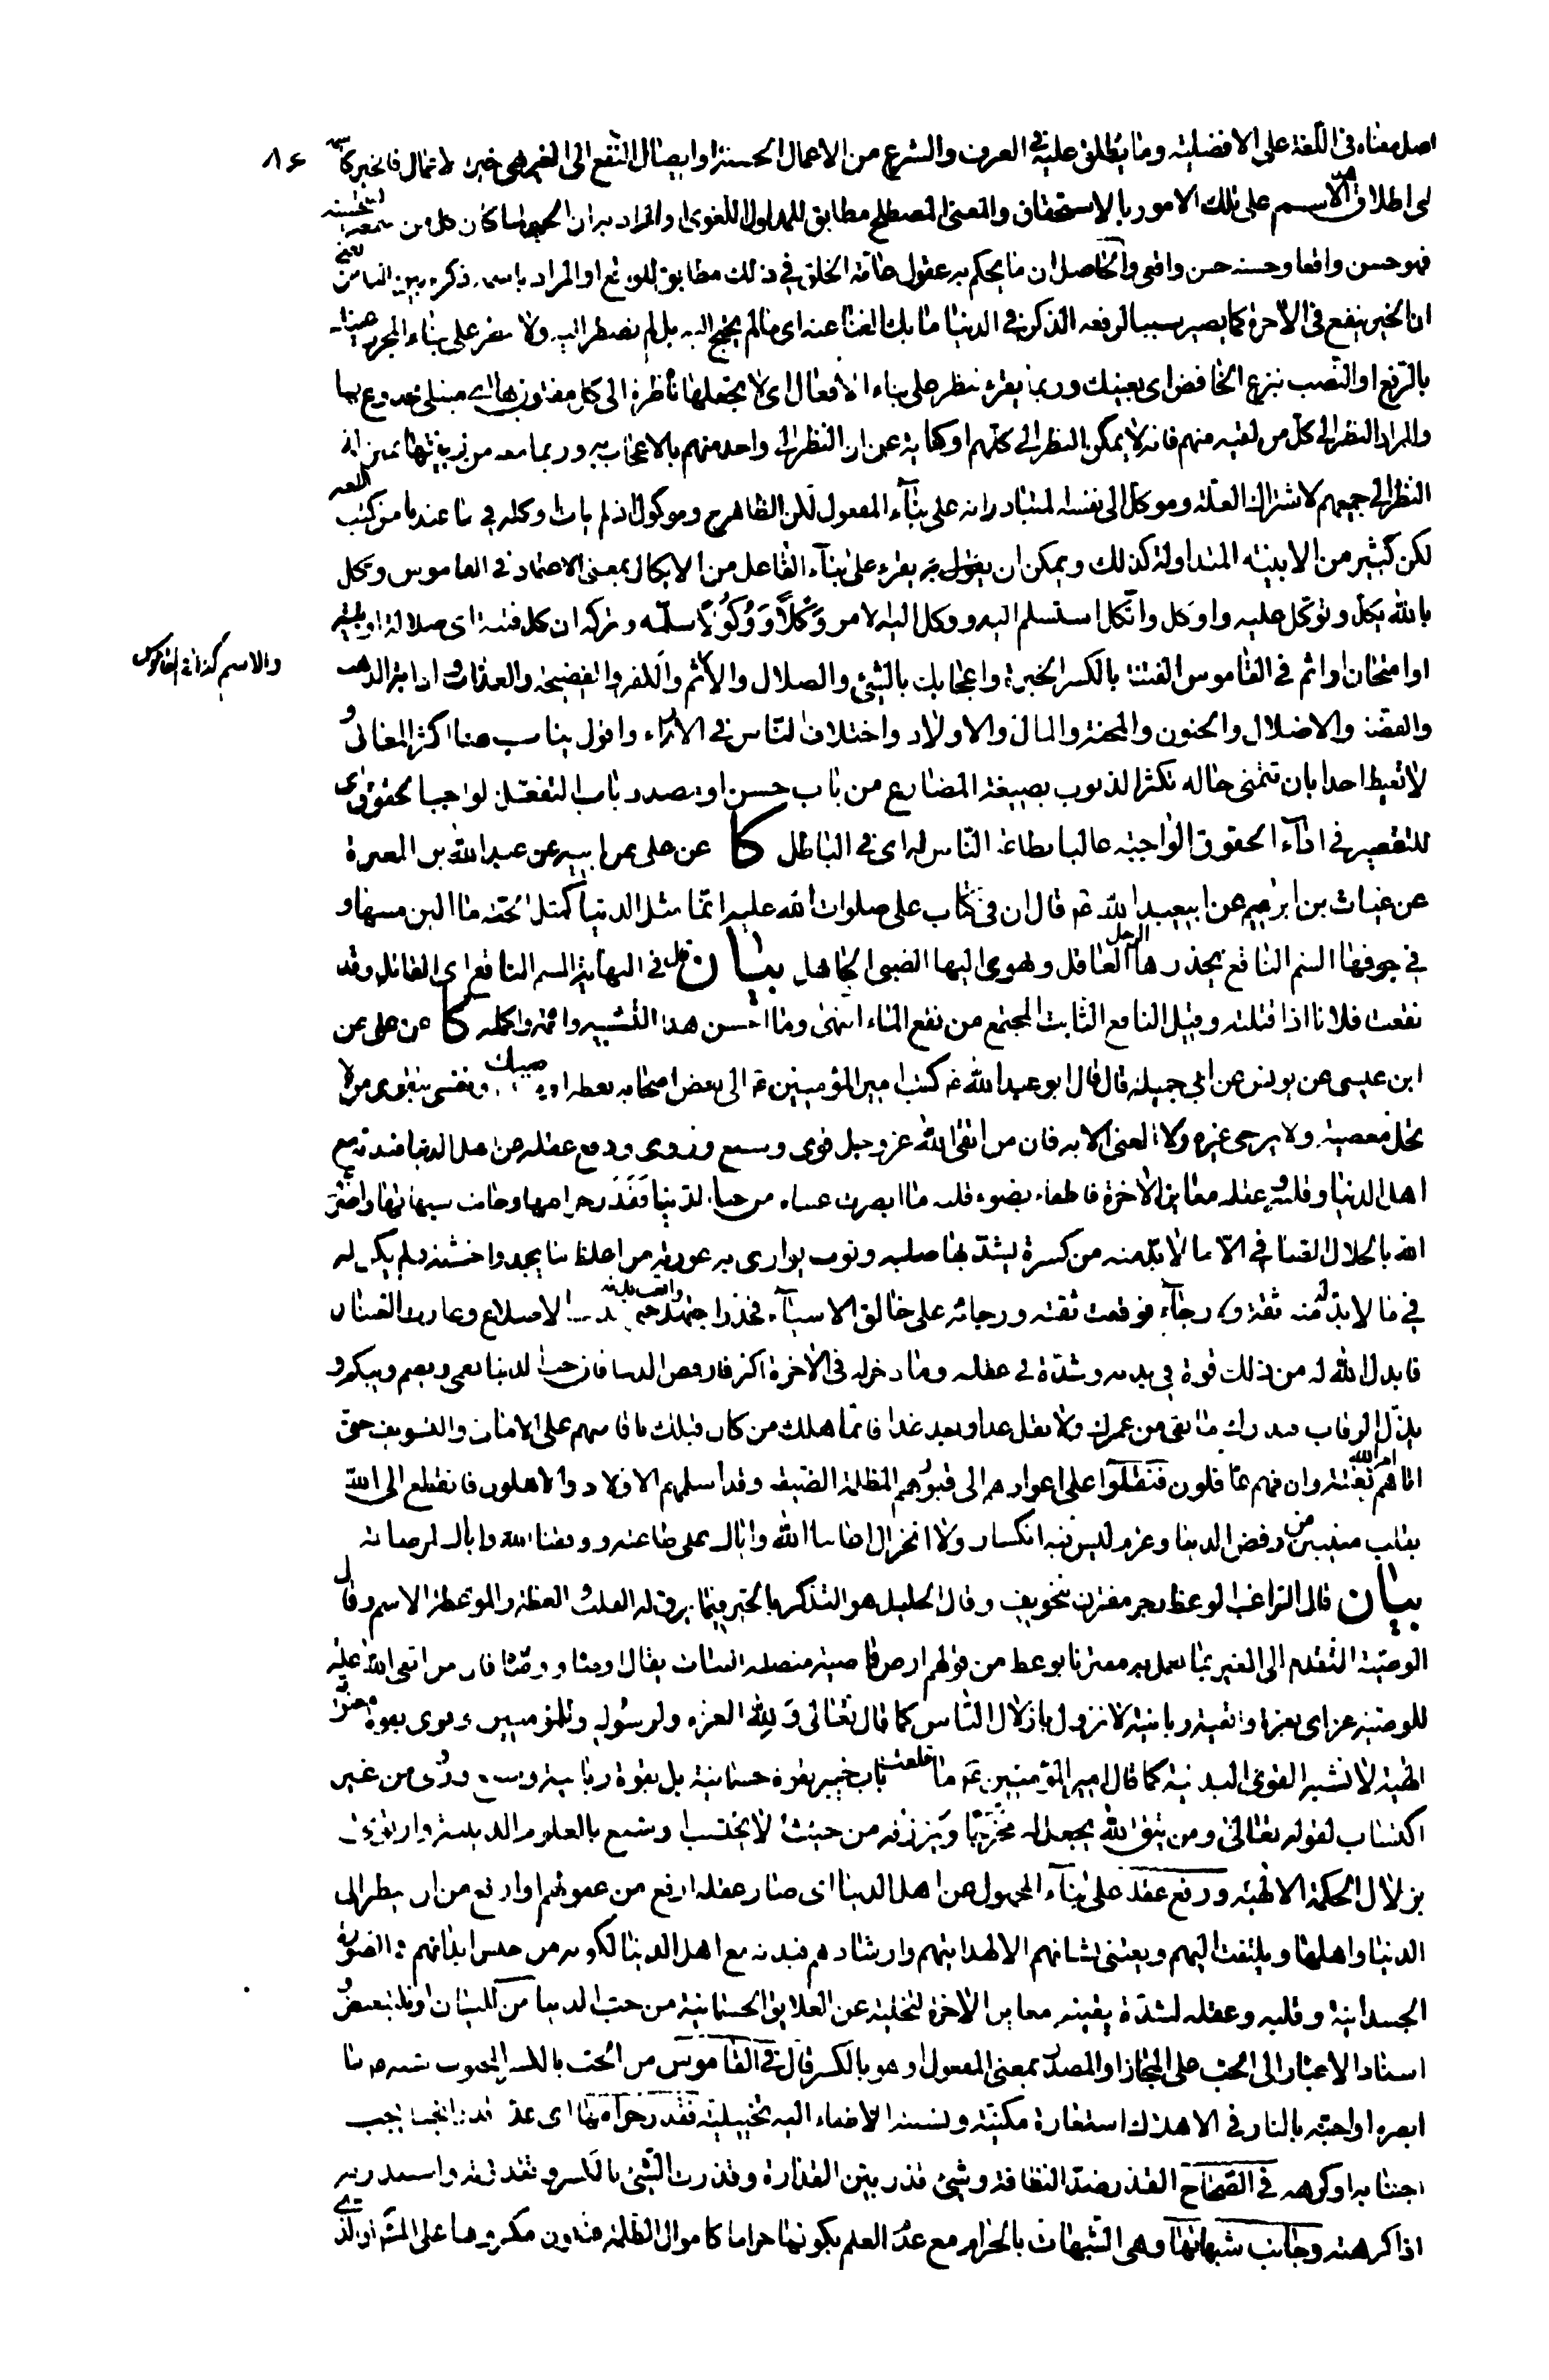 اصل معناه فى اللّغة على الافضلية وما يُطلق عليه فى العرف والشرع من الاعمال الحسنة او ايصال النّفع الى الغير هى خير الاعمال فالخير كا
٨٤
لى اطلاق هذا الاسم على تلك الامور بالاستحقاق والمعنى المصطلح مطابق للمدلول اللغوى او المراد به ان الخير ما كان كل من سمعه استحسنه
فهو حسن واقعا وحسنه حسن واقعى والحاصل ان ما يحكم به عقول عامّة الخلق فى ذلك مطابق للواقع او المراد باسمه ذكره بين الناس يعنى
ان الخير ينفع فى الآخرة كما يصير سببا لرفعه الذكر فى الدنيا ما بك الغنا عنه اى ما لم يحتج اليه بل لم تضطر اليه ولا تنفر على بناء المجرد عيناك
بالرّفع او النّصب بنزع الخافض اى بعينيك وربما يقرء ننظر على بناء الافعال اى لا تجعلها ناظرة الى كل مفتون بها اى مبتلى مخدوع بها
والمراد النظر الى كلّ من لقيه منهم فانه لا يمكن النظر الى كلّهم او كناية عن ان النظر الى واحد منهم بالاعجاب به وربما معه من زينتها بمنزلة
النظر الى جميعهم لاشتراك العلّة وموكل الى نفسه المتبادر انه على بنآء المفعول لكن الظاهر ح وموكول اذ لم يات وكله فى ما عندنا من كتب اللغة
لكن كثير من الابنية المتداولة كذلك ويمكن ان يقول نه يقرء على بنآء الفاعل من الايكال بمعنى الاعتماد فى القاموس وكل
بالله يكل وتوكّل عليه واوكل واتّكل استسلم اليه ووكل اليه الامر وَكْلاً وَوُكُولاً سلّمه وتركه ان كل فتنة اى ضلالة او بليّة
او امتحان او اثم فى القاموس الفتنة بالكسر الخبرة واعجابك بالشئ والضلال والاثم والكفر والفضيحة والعذاب واذابة الذهب
والاسم كذا فى القاموس
والفضة والاضلال والجنون والمحنة والمال والاولاد واختلاف النّاس فى الآراء واقول يناسب هنا اكثر المعانى و
لا تغبط احدا بان تتمنى حاله تكثر الذنوب بصيغة المضارع من باب حسن او مصدر باب التفعّل لواجب الحقوق اى
للتقصير فى ادآء الحقوق الواجبة غالبا بطاعة النّاس له اى فى الباطل كا عن على عن ابيه عن عبد الله بن المغيرة
عن غياث بن ابرهيم عن ابيعبد الله ع قال ان فى كتاب على صلوات الله عليه انّما مثل الدنيا كمثل الحيّة ما الين مسها و
فى جوفها السّم الناقع يحذرها الرجل العاقل ويهوى اليها الصّبى الجاهل بيان قال فى النهاية السم الناقع اى القاتل وقد
نقعت فلانا اذا قتلته وقيل الناقع الثابت المجتمع من نقع المآء انتهى وما احسن هذا التّشبيه واتمه واكمله كا عن على عن
ابن عيسى عن يونس عن ابى جميلة قال قال ابو عبد الله ع كتب امير المؤمنين ع الى بعض اصحابه يعظه اوصيك ونفسى بتقوى من لا
تحل معصيته ولا يرجى غيره ولا الغنى الا به فان من اتقى الله عز وجل قوى وشبع وروى ورفع عقله عن اهل الدنيا فبدنه مع
اهل الدنيا وقلبه وعقله معاين الآخرة فاطفاء بضوء قلبه ما ابصرت عيناه من حب الدنيا فَقَذَّرَ حرامها وجانب شبهاتها واضَرّ
الله بالحلال الصافى الّا ما لا بدّ منه من كسرة يشدّ بها صلبه وثوب يوارى به عورته من اغلظ ما يجد واخشنه ولم يكن له
فى ما لا بدّ له منه ثقة ولا رجآء فوقعت ثقته ورجائه على خالق الاشيآء فجد واجتهد واتعب بدنه حتى بدت الاضلاع وغارت العينان
فابدل الله له من ذلك قوة فى بدنه وشدّة فى عقله وما ذخر له فى الآخرة اكثر فارفض الدنيا فان حبّ الدنيا يعمى ويصم ويبكم و
يذلّ الرقاب فتدرك ما بقى من عمرك ولا تقل غدا وبعد غدا فانّما هلك من كان قبلك باقامتهم على الامانى والتسويف حتى
اتاهم امر الله بغتة وان فهم غافلون فَنُقِلُوا على اعوادهم الى قبورهم المظلمة الضّيقة وقد اسلمهم الاولاد والاهلون فانقطع الى الله
بقلب منيب من رفض الدنيا وعزم ليس فيه انكسار ولا انخزال اعاننا الله واياك على طاعته ووفقنا الله واياك لمرضاته
بيان قال الرّاغب الوعظ زجر مقترن بتخويف وقال الخليل هو التذكر بالخير فيما يرق له القلب والعظة والموعظة الاسم وقال
الوصيّة التّقدم الى الغير بما يعمل به مقترنا بوعظ من قولهم ارض واصية متصلة النبات يقال اوصا ووصّا فان من اتقى الله علّة
للوصيّة عز اى بعزة واقعية ربانية لا تزول باذلال النّاس كما قال تعالى وَلِلّهِ العزة ولرسوله وللمؤمنين وقوى بقوة معنويّة
الهيّة لا تشبه القوى البدنية كما قال امير المؤمنين ع ما قلعت باب خيبر بقوة جسمانية بل بقوة ربانية وشبع وروى من غير
اكتساب لقوله تعالى ومن يتق الله يجعل له مخرجًا ويرزقه من حيث لا يحتسب او شبع بالعلوم الدينية وارتوى
بزلال الحكمة الالهيّة ورفع عقله على بنآء المجهول عن اهل الدنيا اى صار عقله ارفع من عقولهم او ارفع من ان ينظر الى
الدنيا واهلها ويلتفت اليهم ويعتنى بشانهم الا لهدايتهم وارشادهم فبدنه مع اهل الدنيا لكونه من جنس ابدانهم فى الصّورة
الجسدانية وقلبه وعقله لشدّة يقينه معاين الآخرة لتخليته عن العلايق الجسمانية من حب الدنيا من للبيان او للتبعيض و
اسناد الابصار الى الحبّ على المجاز او المصدر بمعنى المفعول او هو بالكسر قال فى القاموس من الحب بالكسر المحبوب شبه ما
ابصره او احبّه بالنار فى الاهلاك استعارة مكنيّة ونسبة الاطفاء اليه تخييلية فقذر حرامها اى عدّه قذرا نجسا يجب
اجتنابه او كرهه فى الصّحاح القذر ضدّ النظافة وشئ قذر بيّن القذارة وقذرت الشّئ بالكسر وتقذرته واستقذرته
اذا كرهته وجانب شبهاتها وهى الشّبهات بالحرام مع عدم العلم بكونها حراما كاموال الظلمة فيكون مكروها على المشهور